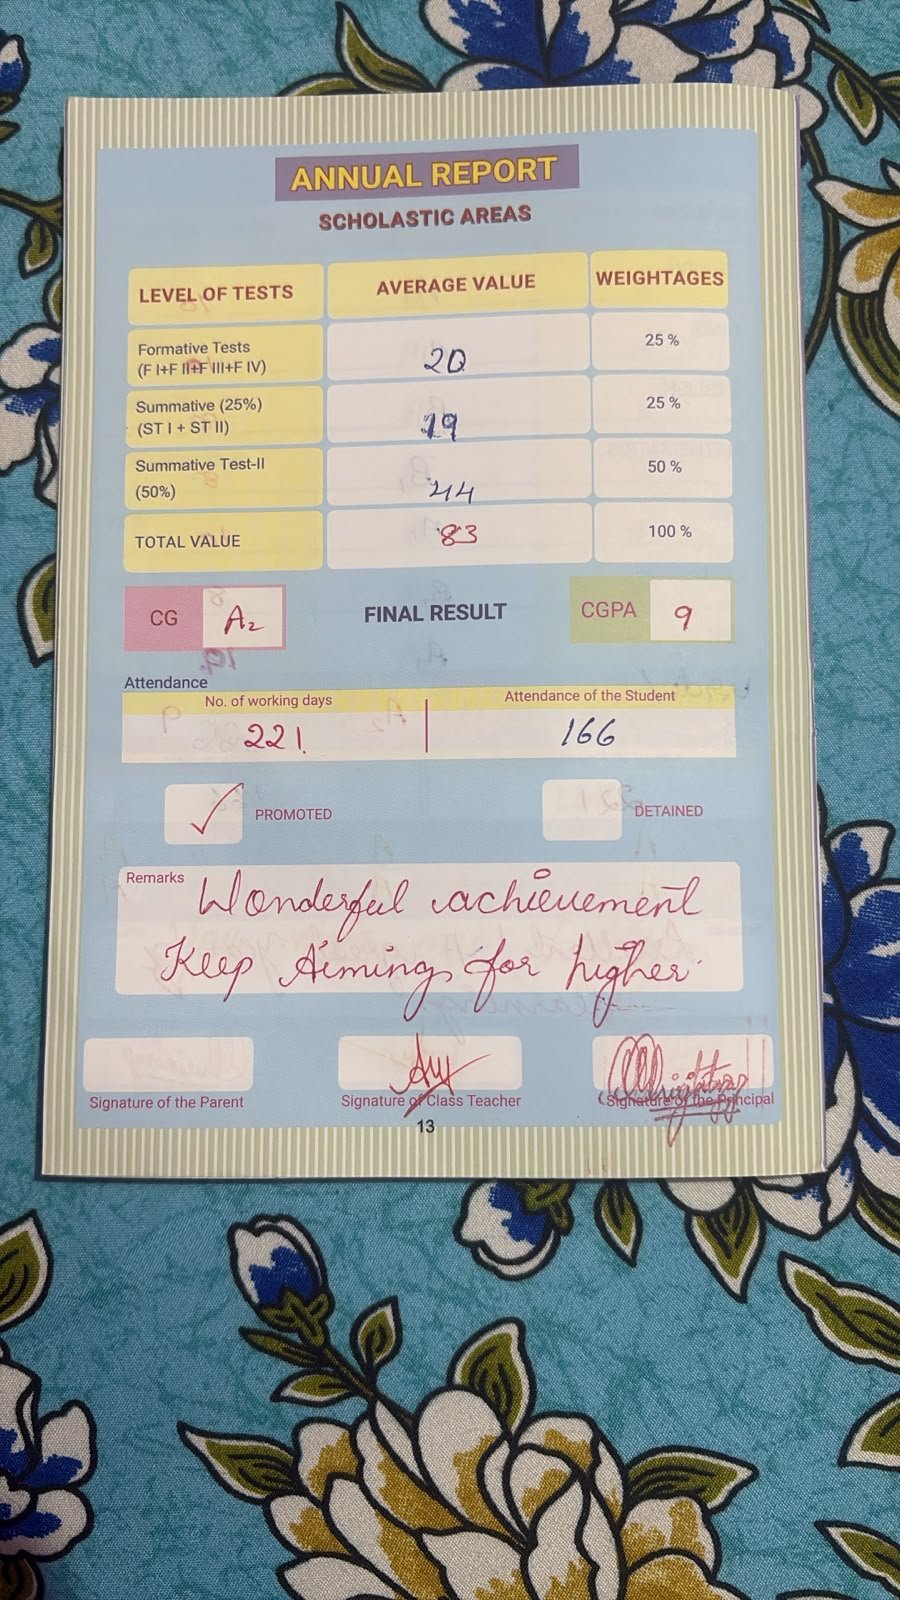 ANNUAL REPORT
SCHOLASTIC AREAS
LEVEL OF TESTS AVERAGE VALUE WEIGHTAGES
Formative Tests
(F I+F II+F III+F IV) 20 25 %
Summative (25%)
(ST I + ST II) 19 25 %
Summative Test-II
(50%) 44 50 %
TOTAL VALUE 83 100 %
CG A2 FINAL RESULT CGPA 9
Attendance
No. of working days Attendance of the Student
221 166
PROMOTED DETAINED
Remarks Wonderful achievement
Keep Aiming for higher
Signature of the Parent Signature of Class Teacher Signature of the Principal
13